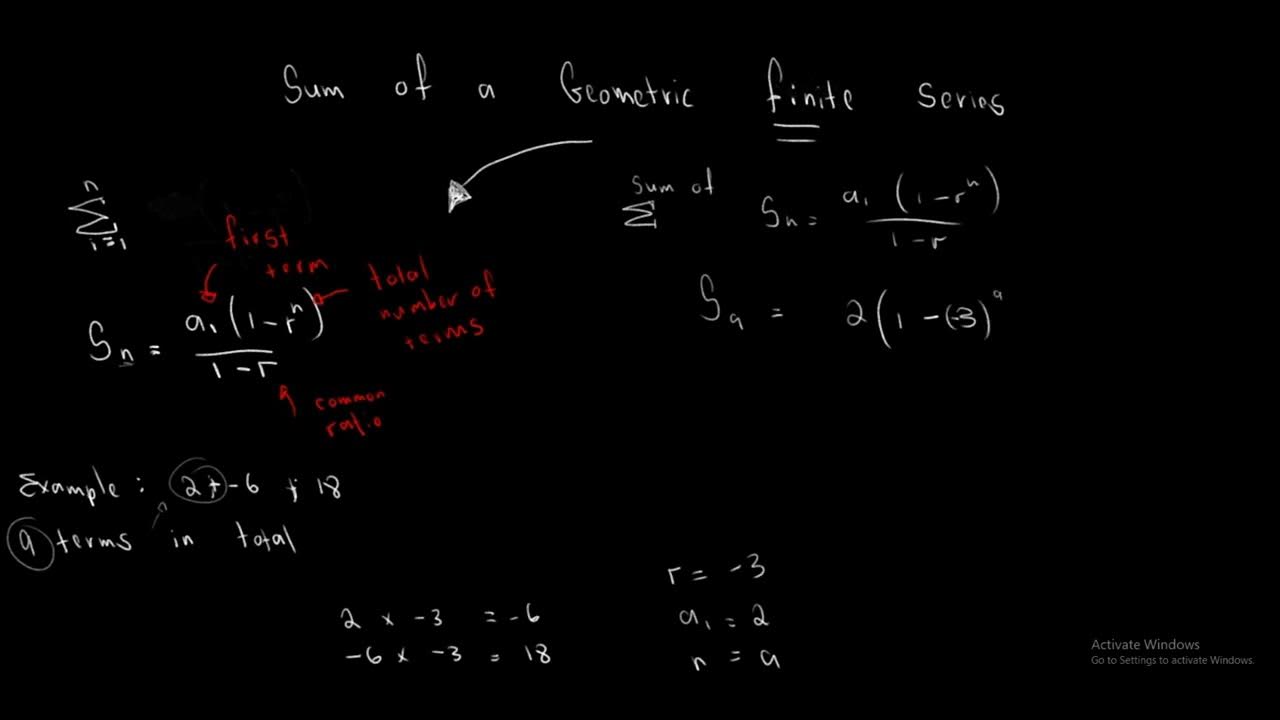 Sum of a Geometric finite series
n
∑
i=1
first
term
total
number of
terms
Sₙ = a₁ (1 - rⁿ) / 1 - r
common
ratio
Sum of
∑
Sₙ = a₁ (1 - rⁿ) / 1 - r
S₉ = 2 (1 - (-3)⁹
Example : 2 + -6 + 18
9 terms in total
2 × -3 = -6
-6 × -3 = 18
r = -3
a₁ = 2
n = 9
Activate Windows
Go to Settings to activate Windows.